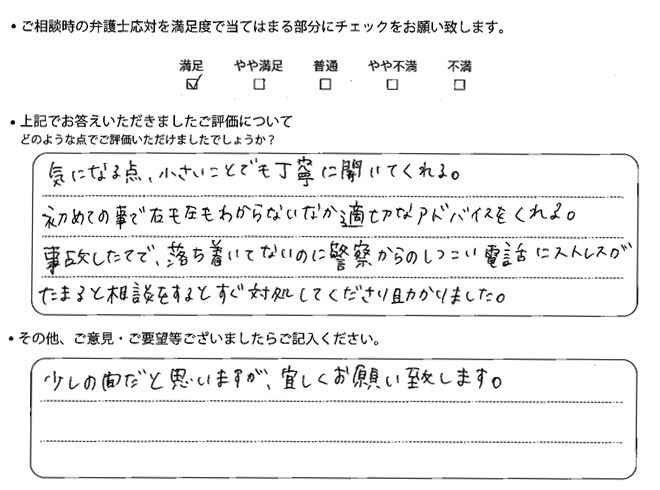 • ご相談時の弁護士応対を満足度で当てはまる部分にチェックをお願い致します。
満足 やや満足 普通 やや不満 不満
☑ ☐ ☐ ☐ ☐
• 上記でお答えいただきましたご評価について
どのような点でご評価いただけましたでしょうか？
気になる点、小さいことでも丁寧に聞いてくれる。
初めての事で右も左もわからないなか適切なアドバイスをくれる。
事故したてで、落ち着いてないのに警察からのしつこい電話にストレスが
たまると相談をするとすぐ対処してくださり助かりました。
• その他、ご意見・ご要望等ございましたらご記入ください。
少しの間だと思いますが、宜しくお願い致します。